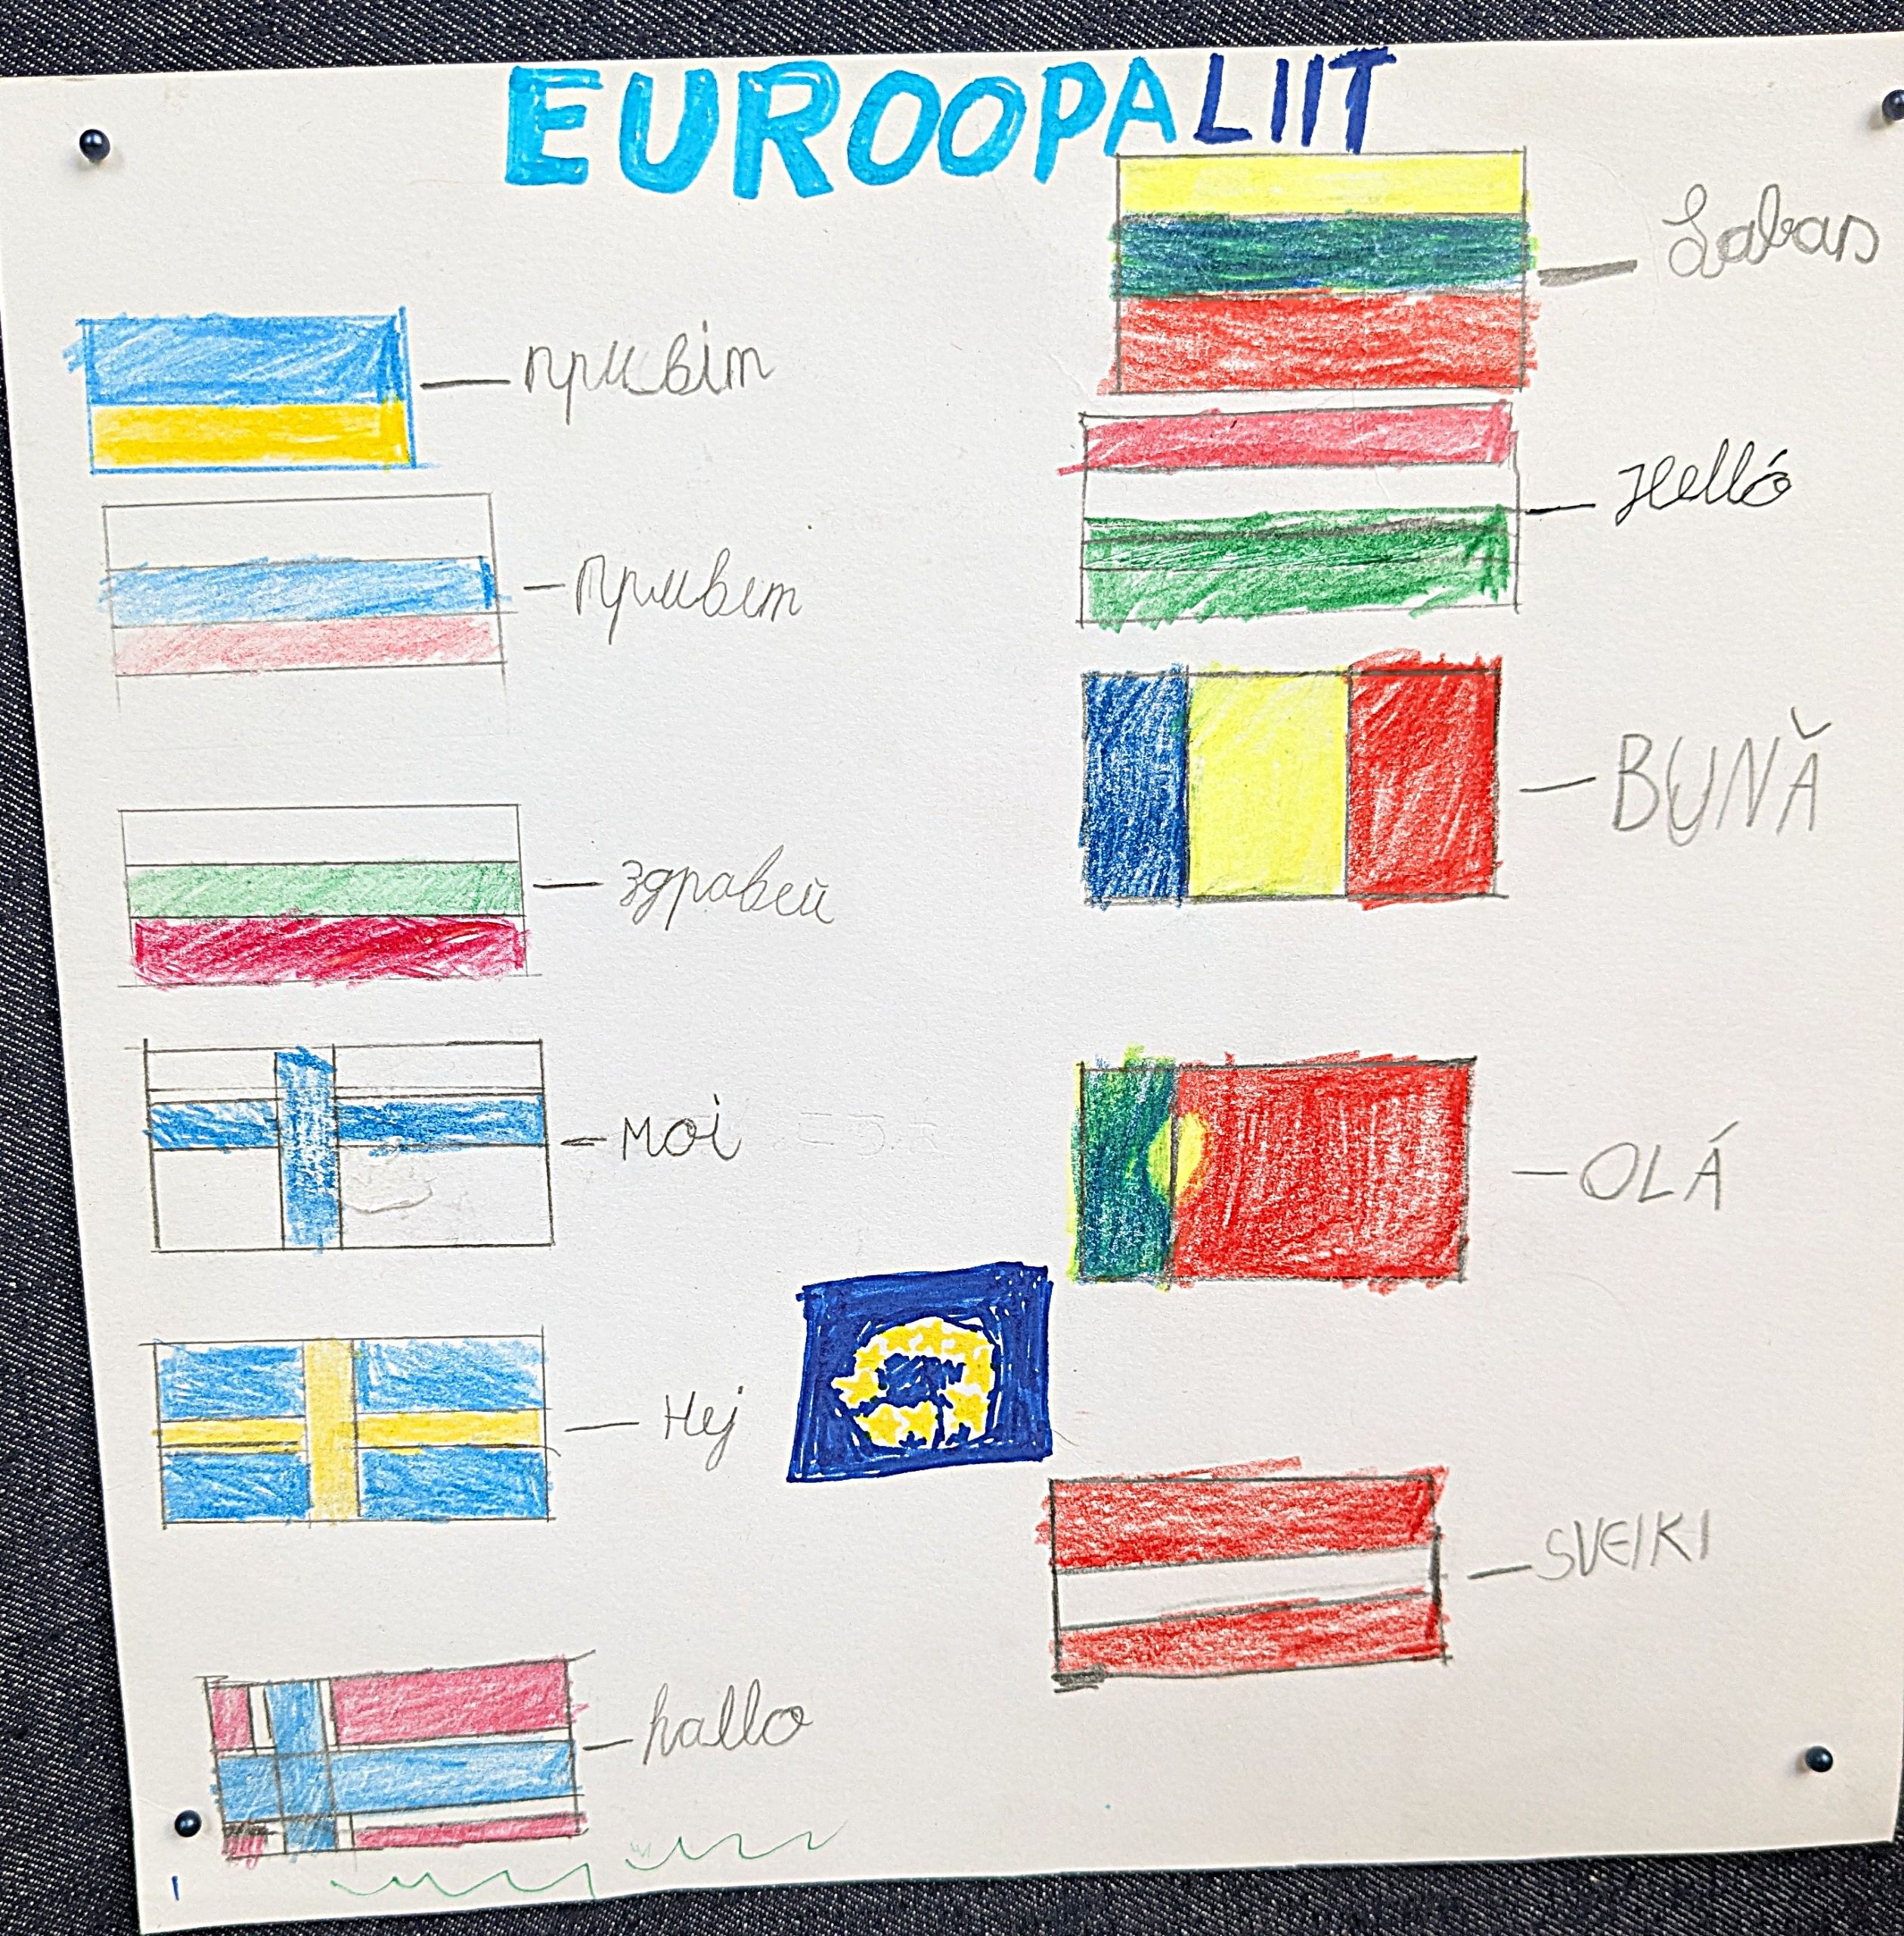 EUROOPALIIT
привіт
привет
здравей
moi
Hej
hallo
Labas
Helló
BUNĂ
OLÁ
SVEIKI